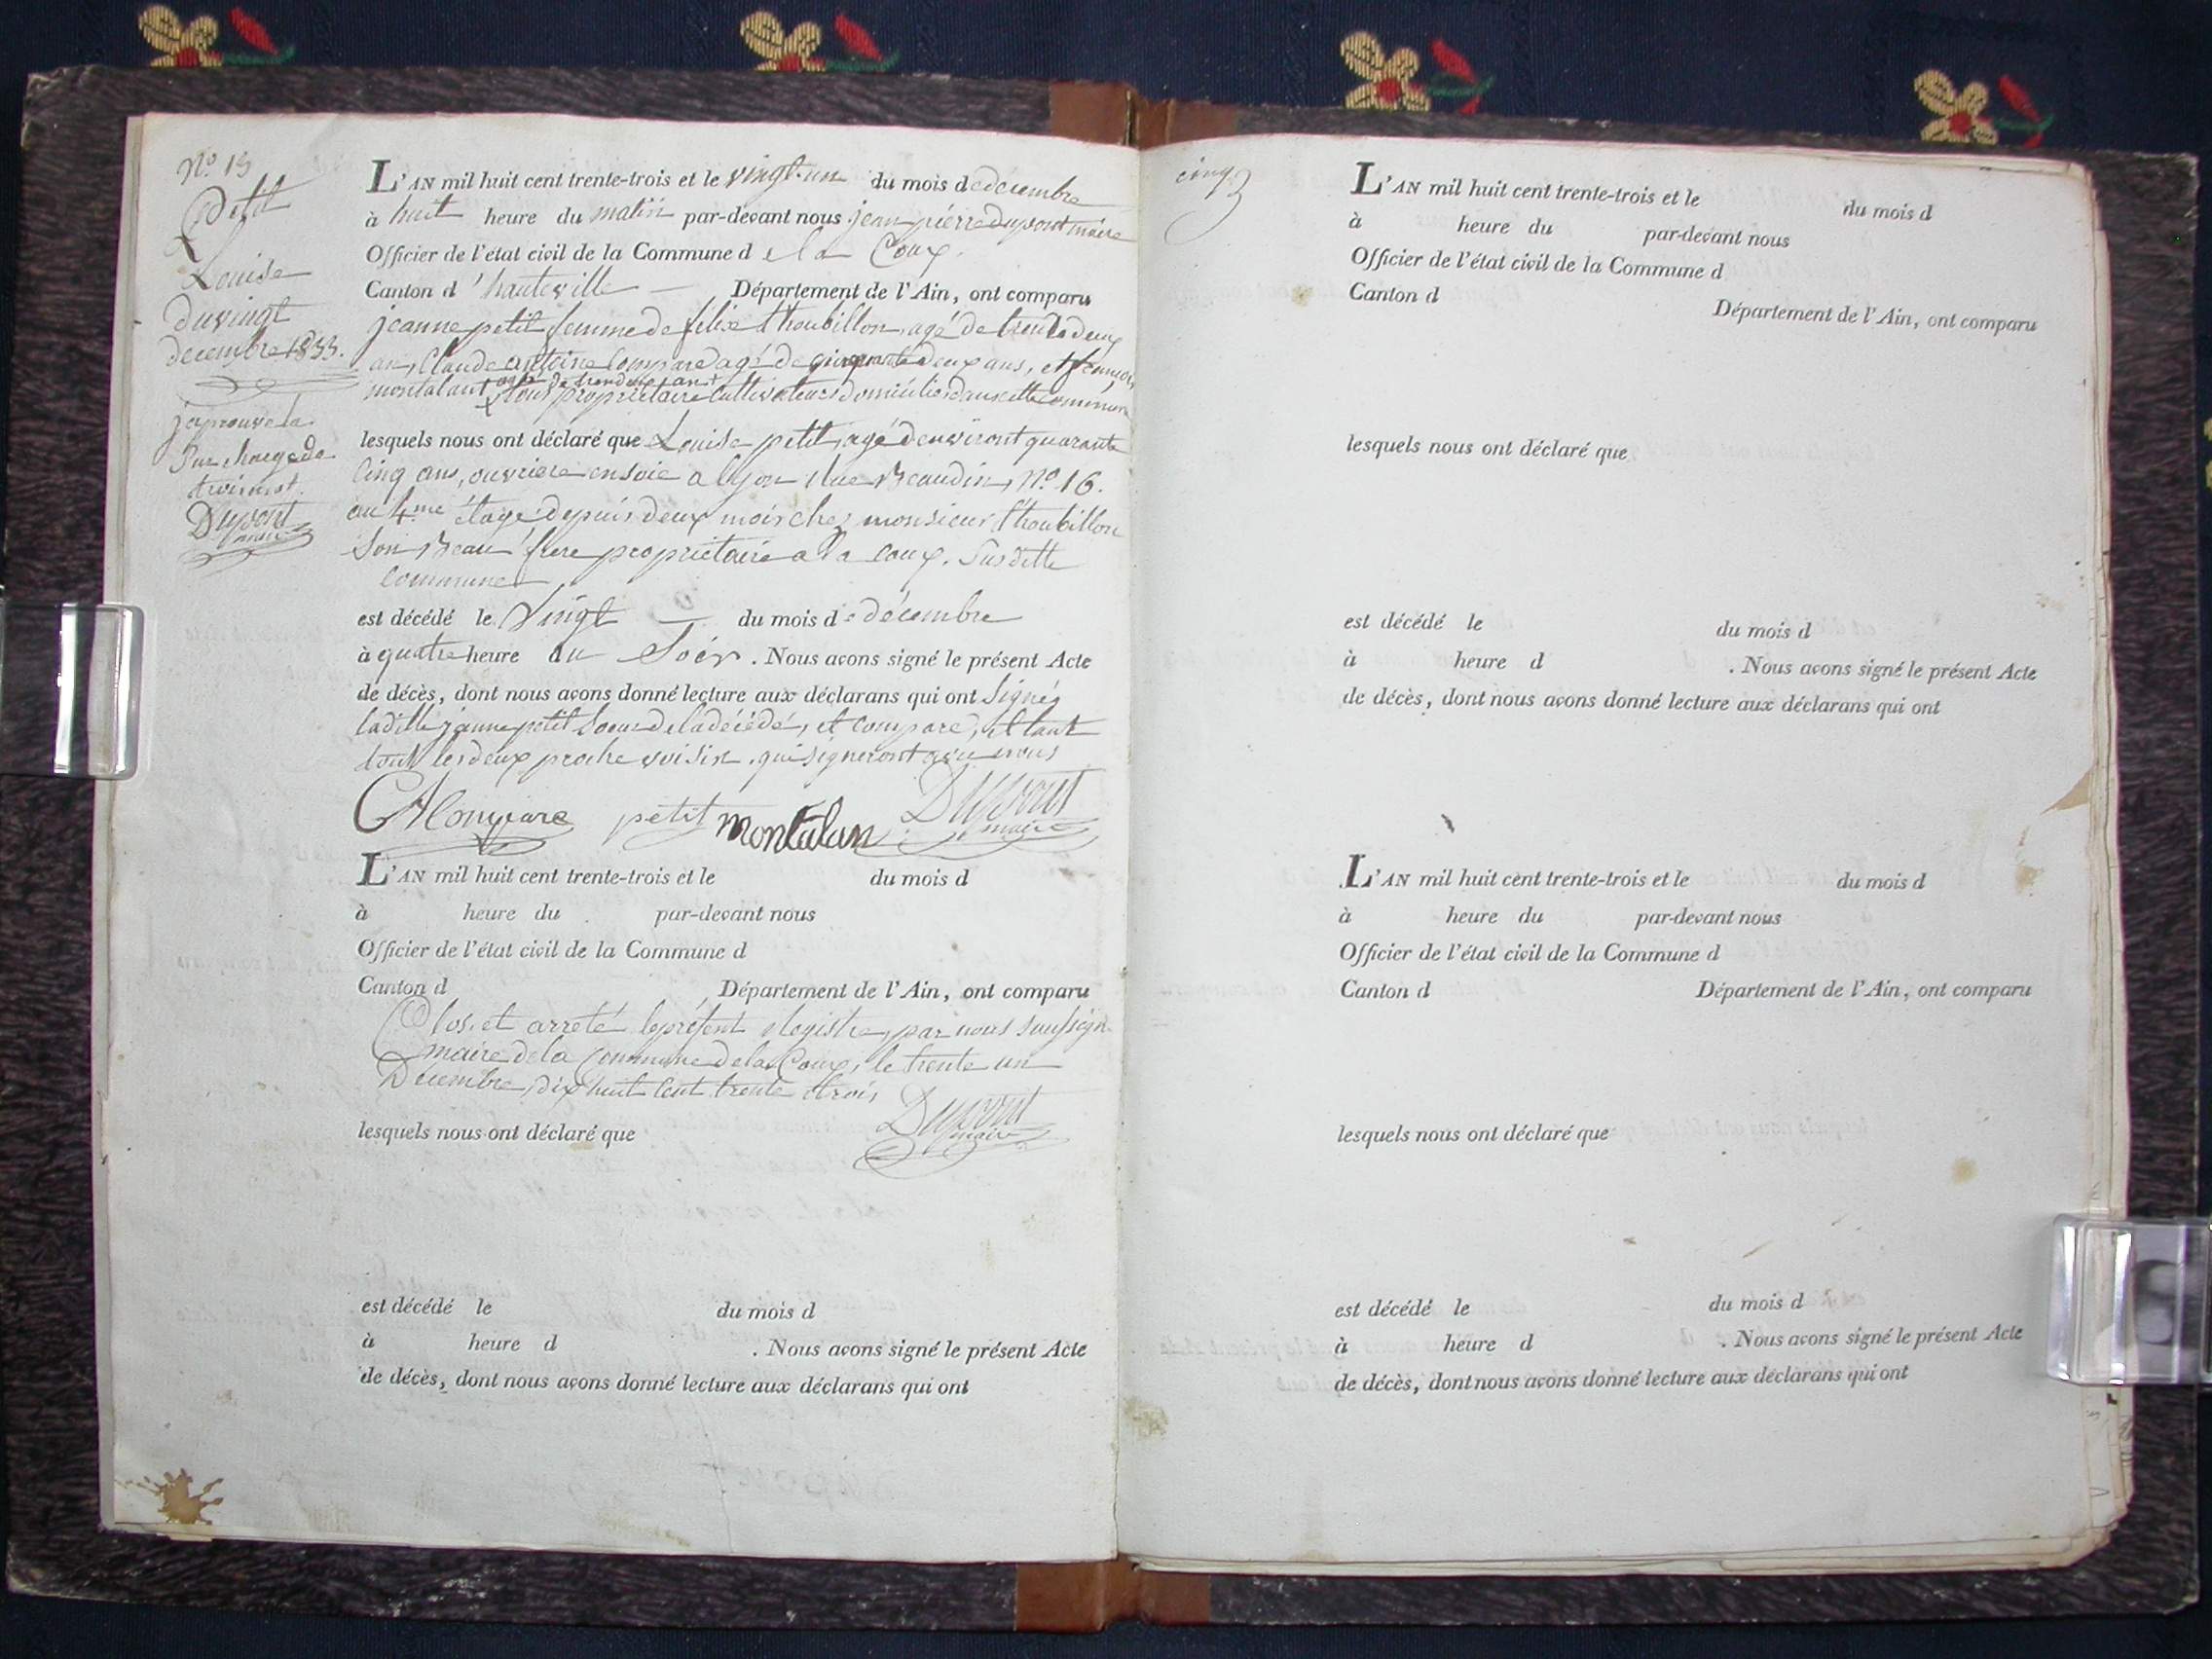 N.º 13
Petit
Louise
du vingt
decembre 1833.
j'aprouve la
Surcharge de
trois mot.
Dupont
maire
L'AN mil huit cent trente-trois et le vingt-un du mois de decembre
à huit heure du matin par-devant nous jean pierre dupont maire
Officier de l'état civil de la Commune d e la Coux.
Canton d'hauteville — Département de l'Ain, ont comparu
jeanne petit femme de felix thoubillon, agé de trente deux
ans, Claude antoine Compare agé de cinquante deux ans, et
montalant tous propriétaire Cultivateurs domiciliés dans cette commune
lesquels nous ont déclaré que Louise petit, agé d'environt quarante
cinq ans, ouvriere en soie a lyon rue Beaudin, N.º 16.
au 4.me étage depuis deux mois chez monsieur thoubillon
Son Beau frere propriétaire a la coux. Susditte
commune
est décédé le Vingt — du mois de décembre
à quatre heure du Soir. Nous avons signé le présent Acte
de décès, dont nous avons donné lecture aux déclarans qui ont Signés
laditte jeanne petit Soeur de la décédé, et compare, etant
tout les deux proche voisin. qui signeront avec nous
CA Compare petit montalan Dupont
maire
L'AN mil huit cent trente-trois et le du mois d
à heure du par-devant nous
Officier de l'état civil de la Commune d
Canton d Département de l'Ain, ont comparu
Clos. et arreté le présent Registre, par nous soussign
maire de la Commune de la Coux, le trente un
Decembre, dix huit cent trente trois
Dupont
maire
lesquels nous ont déclaré que
est décédé le du mois d
à heure d . Nous avons signé le présent Acte
de décès, dont nous avons donné lecture aux déclarans qui ont
cinq
L'AN mil huit cent trente-trois et le du mois d
à heure du par-devant nous
Officier de l'état civil de la Commune d
Canton d Département de l'Ain, ont comparu
lesquels nous ont déclaré que
est décédé le du mois d
à heure d . Nous avons signé le présent Acte
de décès, dont nous avons donné lecture aux déclarans qui ont
L'AN mil huit cent trente-trois et le du mois d
à heure du par-devant nous
Officier de l'état civil de la Commune d
Canton d Département de l'Ain, ont comparu
lesquels nous ont déclaré que
est décédé le du mois d
à heure d . Nous avons signé le présent Acte
de décès, dont nous avons donné lecture aux déclarans qui ont